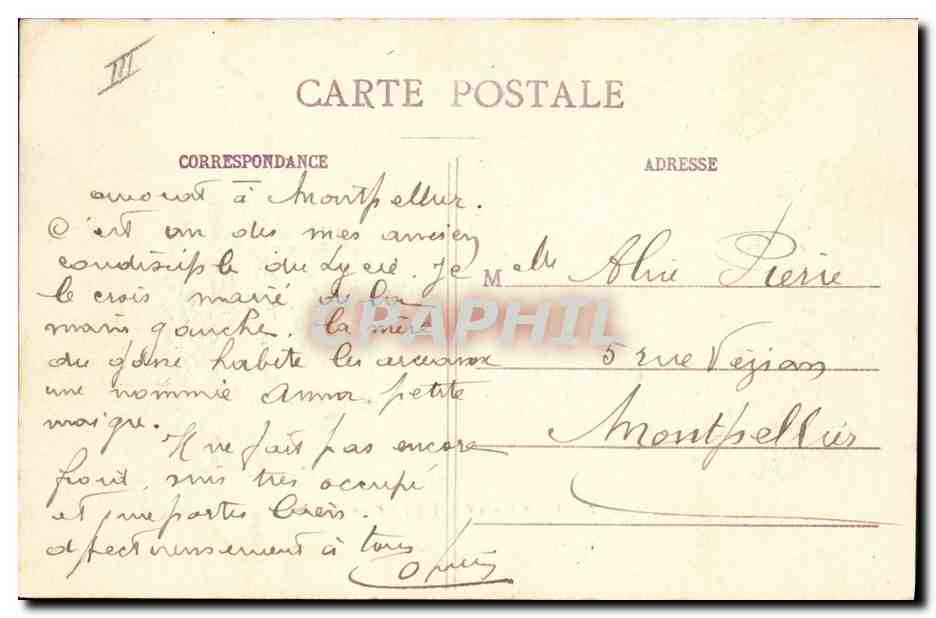 III
CARTE POSTALE
CORRESPONDANCE
ADRESSE
avocat à Montpellier.
C'est un des mes anciens
condisciple du Lycée. Je
le crois marié de la
main gauche. la mère
du gosse habite les arceaux
une nommée Anna petite
maigre.
Il ne fait pas encore
froid, suis très occupé
et me portes bien.
affectueusement à tous
Melle Pierre
5 rue Vézian
Montpellier
CPAPHIL